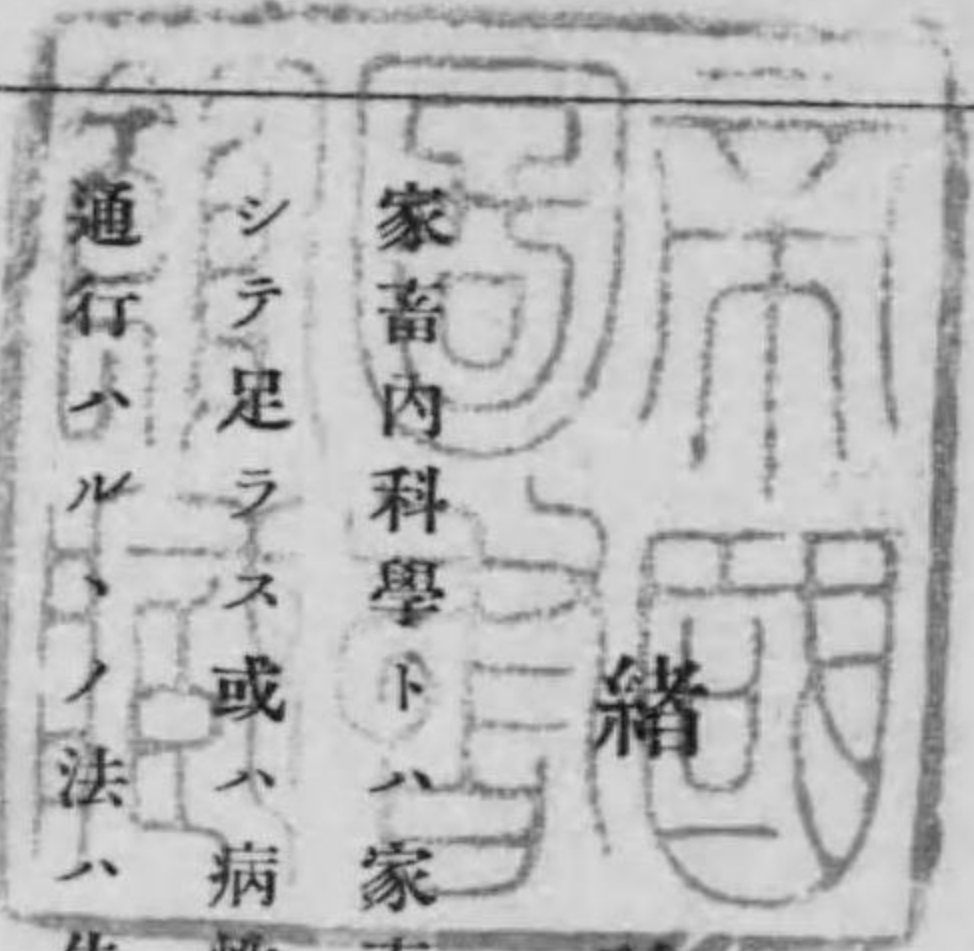 緒
家畜内科學トハ家
シテ足ラス或ハ病
通行ハルヽノ法ハ